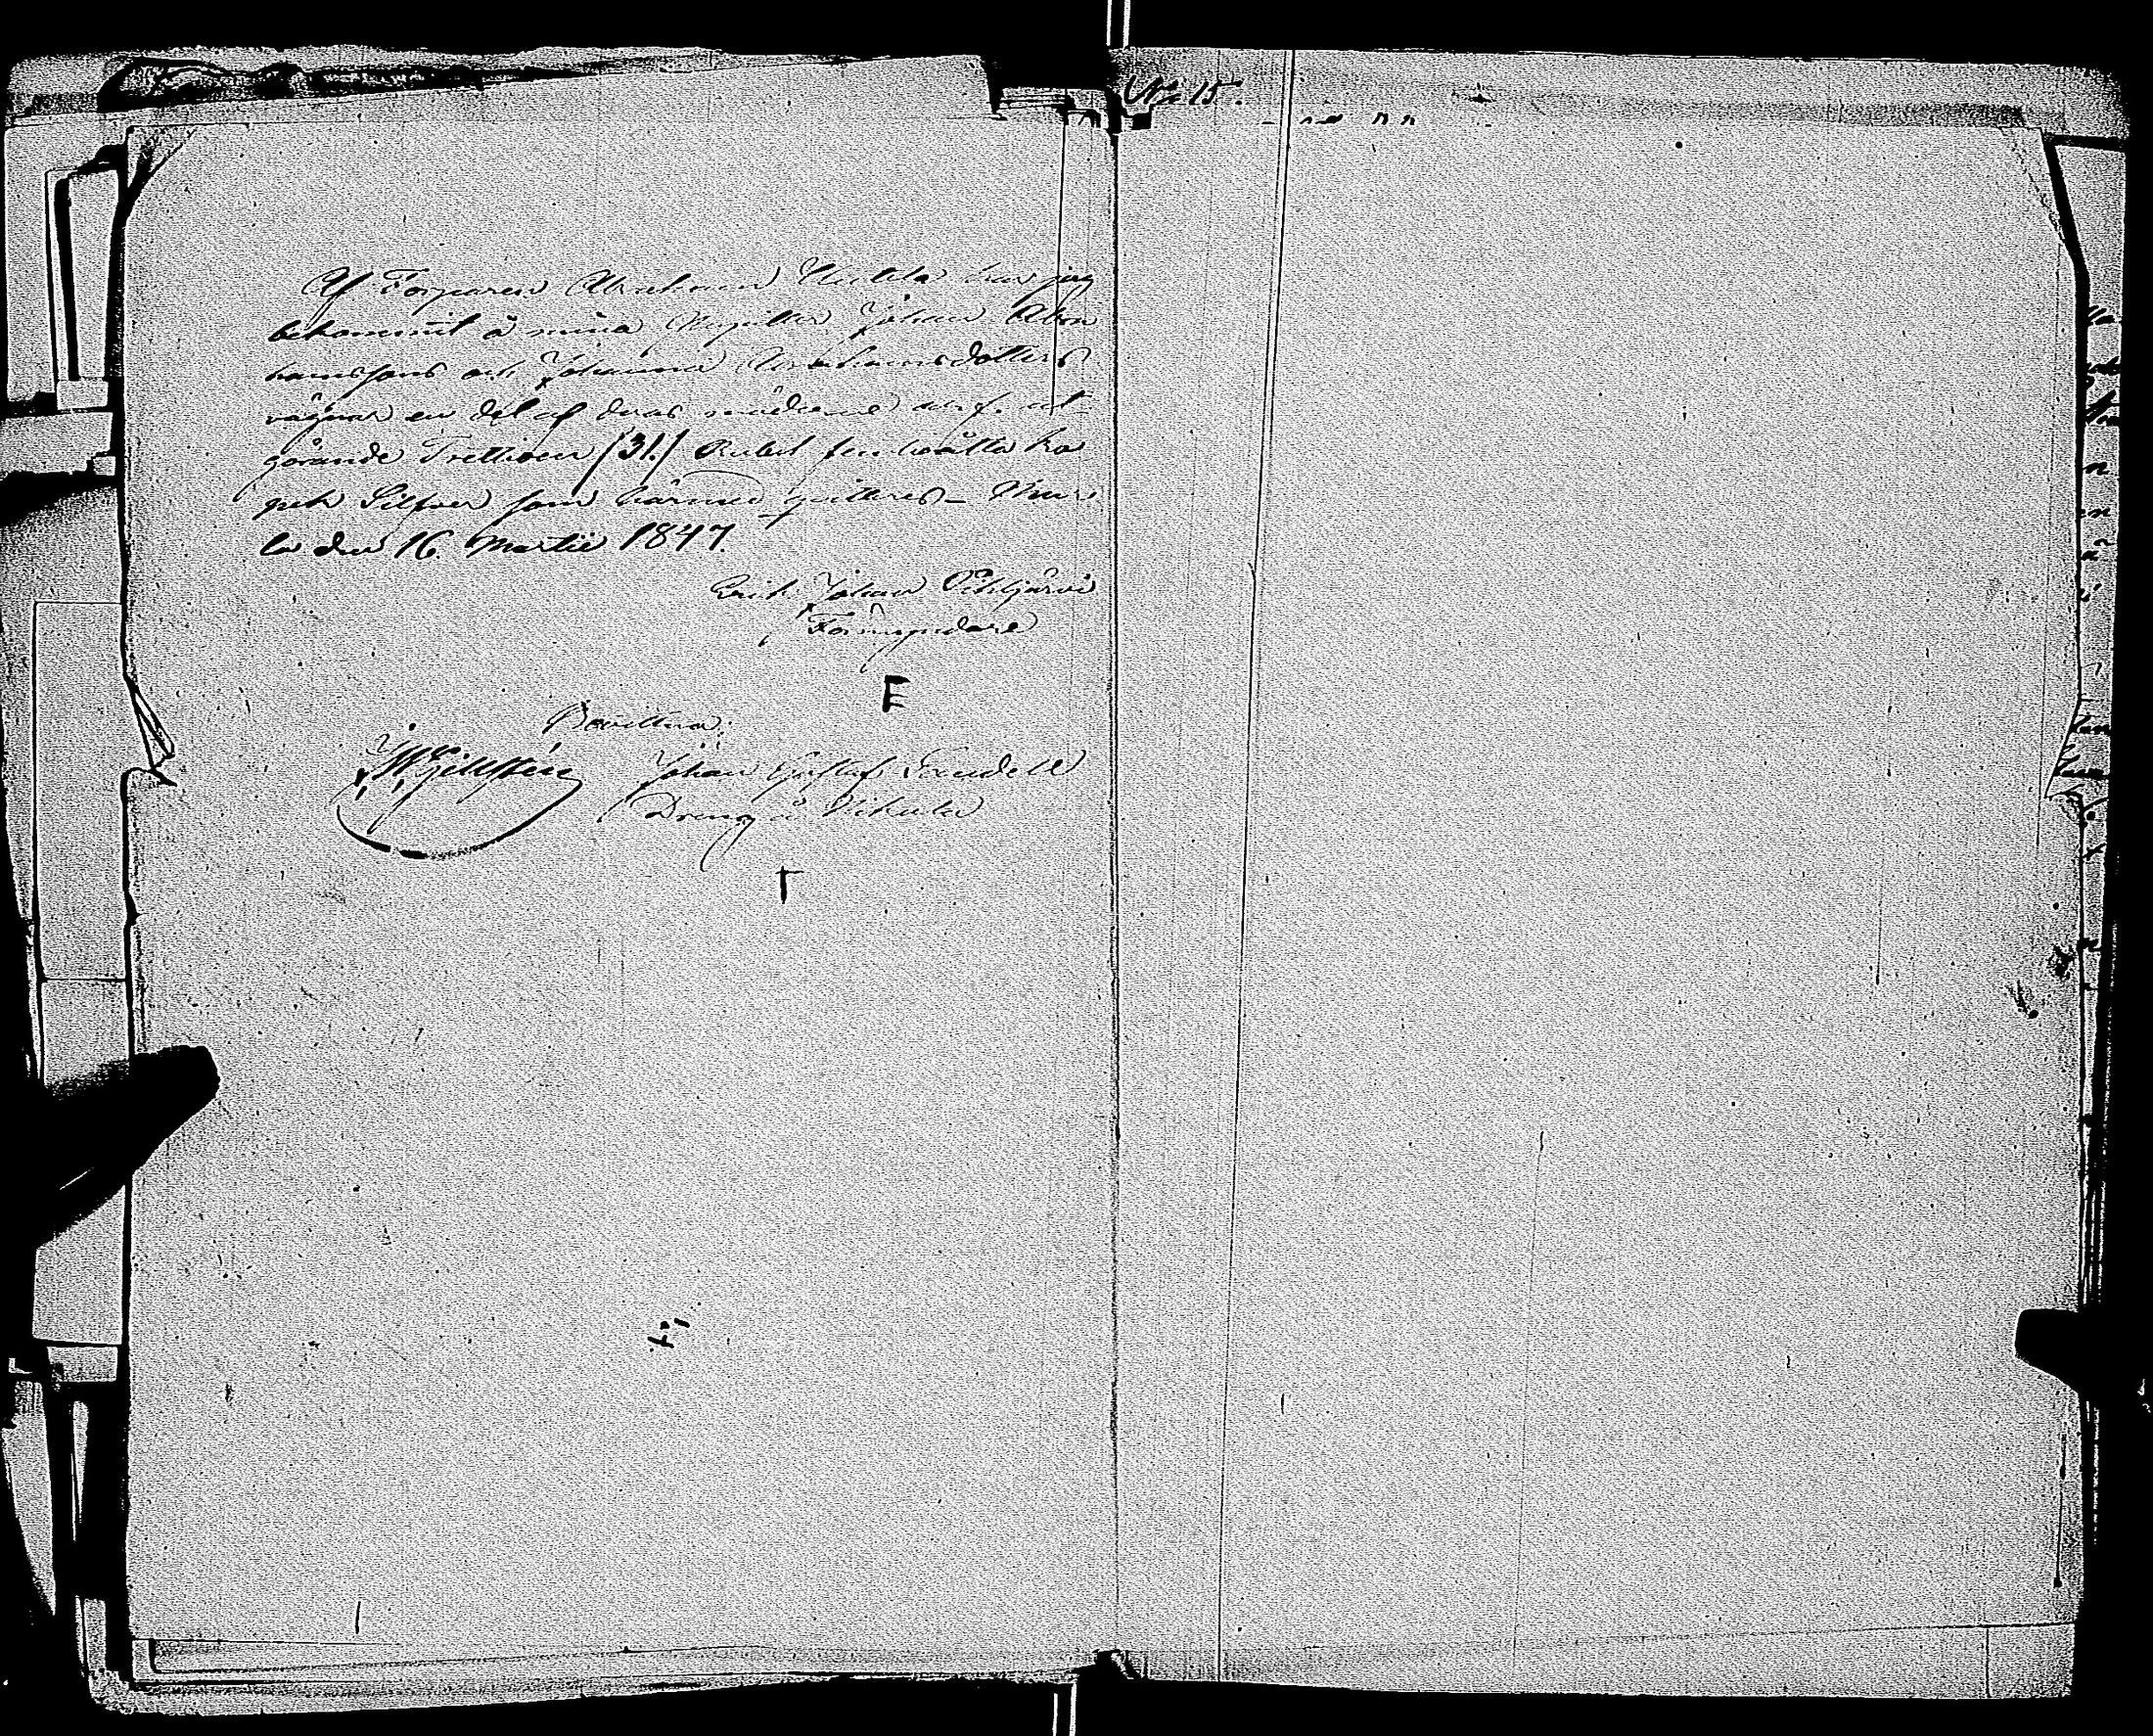 Af Torparen Abraham har jag
bekommit å mina Myndlar Johan Abra
hamssons och Johanna Abrahamsdotters
vägnar en del af deras möderne arf, ut-
görande Trettioen /31./ Rubel femtioåtta ko
pek Silfver som härmed qvitteras -
la den 16. Martii 1847.
Erik Johan Pitkjärvi
Förmyndare
E
Bevittna:
Johan Gustaf
Dräng å
T
No 15.